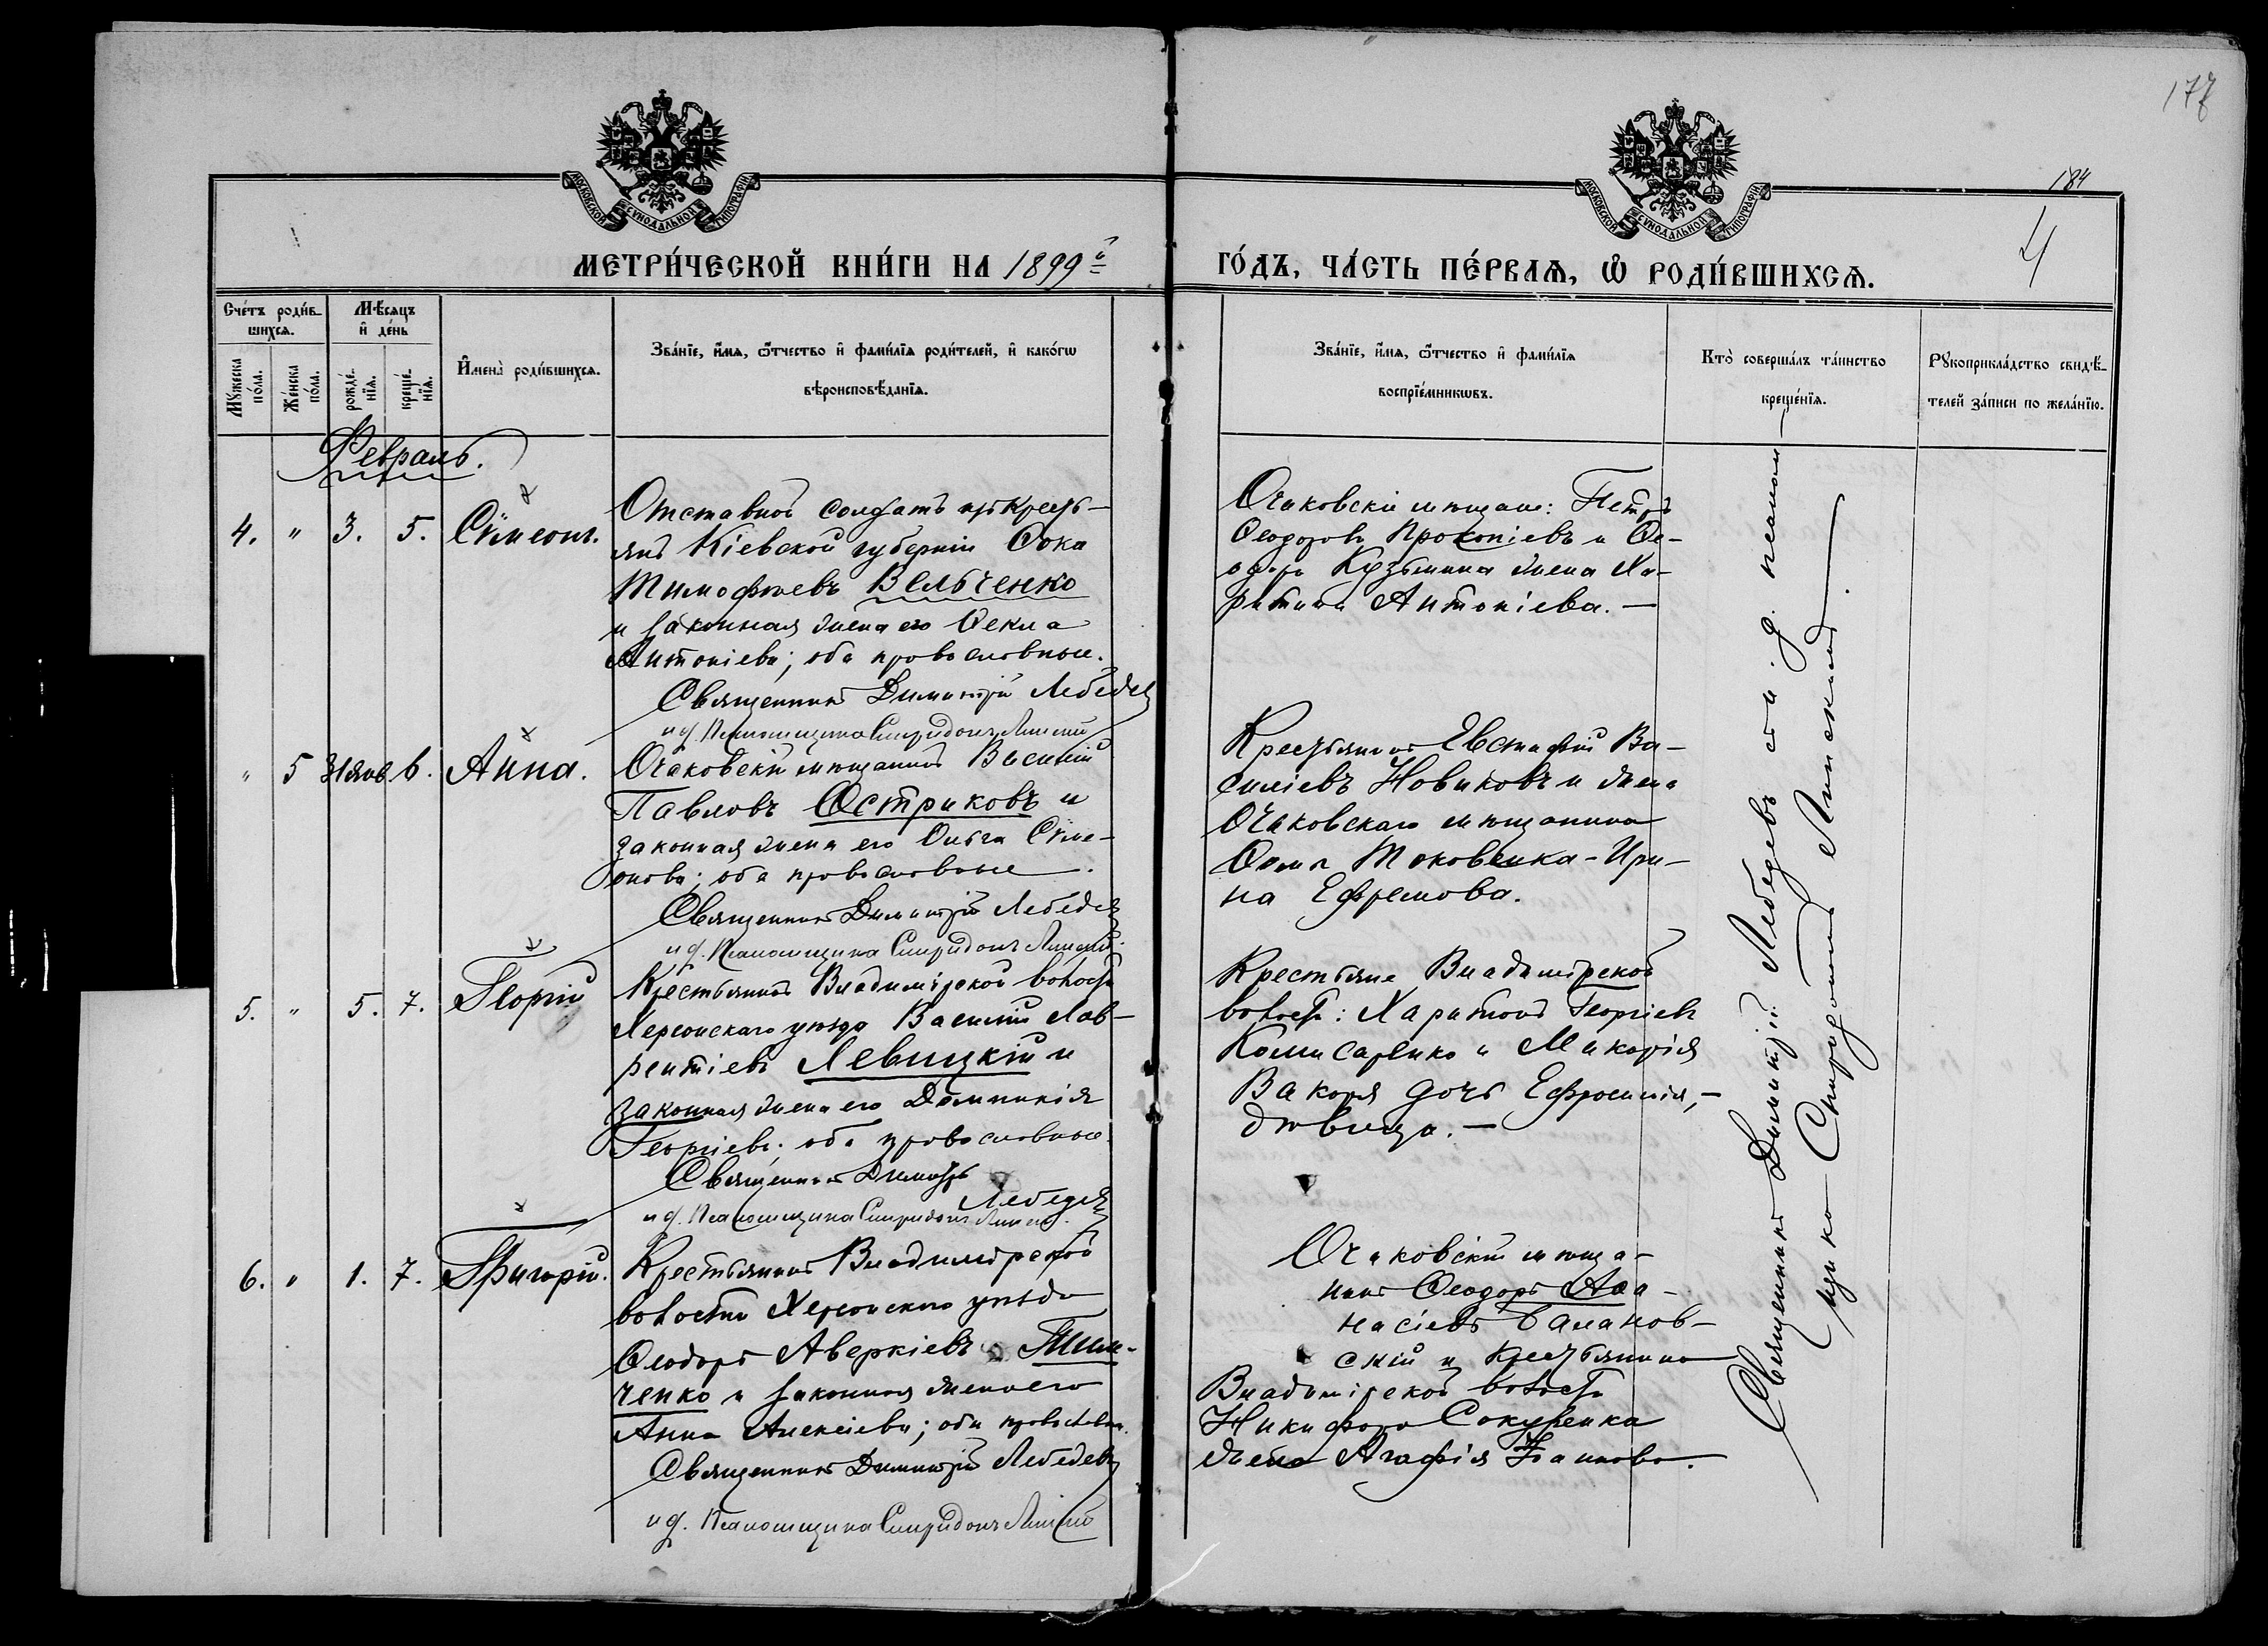 177
184
4
МОСКОВСКОЙ СѴНОДАЛЬНОЙ ТИПОГРАФІИ
МОСКОВСКОЙ СѴНОДАЛЬНОЙ ТИПОГРАФІИ
МЕТРИ́ЧЕСКОЙ КНИ́ГИ НА 1899й
ГО́ДЪ, ЧА́СТЬ ПЕ́РВАѦ, Ѡ РОДИ́ВШИХСѦ.
Сче́тъ роди́в-
шихсѧ.
Мꙋ́жеска по́ла.
Же́нска по́ла.
Мѣ́сѧцъ и҆ де́нь
рожде́-
нїѧ.
креще́-
нїѧ.
И҆мена̀ роди́вшихсѧ.
Зва́нїе, и҆́мѧ, ѻ҆́тчество и҆ фами́лїѧ роди́телей, и҆ како́гѡ
вѣроисповѣ́данїѧ.
Зва́нїе, и҆́мѧ, ѻ҆́тчество и҆ фами́лїѧ
воспрїе́мникѡвъ.
Кто̀ соверша́лъ та́инство
креще́нїѧ.
Рꙋкоприкла́дство свидѣ́-
телей за́писи по жела́нїю.
Февраль.
4. " 3. 5. Сѵмеонъ.
Отставной солдатъ изъ кресть-
янъ Кіевской губерніи Ѳока
Тимофѣевъ Вельченко
и законная жена его Ѳекла
Антоніева; оба православные.
Священникъ Димитрій Лебедев
и д. Псаломщика Спиридонъ Липскій
Очаковскіе мѣщане: Петръ
Ѳеодоровъ Прокопіевъ и Ѳе-
одора Кузьмина жена Ха-
ритина Антоніева. —
" 5 31 янв. 6. Анна.
Очаковскій мѣщанинъ Василій
Павловъ Остриковъ и
законная жена его Ольга Сѵме-
онова; оба православные.
Священникъ Димитрій Лебедев
и д. Псаломщика Спиридонъ Липскій.
Крестьянинъ Евстафій Ва-
силіевъ Новиковъ и жена
Очаковскаго мѣщанина
Ѳомы Таковенка - Ири-
на Ефремова.
5. " 5. 7. Георгій
Крестьянинъ Владимірской волости
Херсонскаго уѣзда Василій Лав-
рентіевъ Левицкій и
законная жена его Домникія
Георгіева; оба православные.
Священникъ Димитрій
Лебедев
и д. Псаломщика Спиридонъ Липскій.
Крестьяне Владимірской
волости: Харитонъ Георгіевъ
Комисаренко и Макарія
Вакоря дочь Ефросинія, —
дѣвица. —
6. " 1. 7. Григорій.
Крестьянинъ Владимірской
волости Херсонскаго уѣзда
Ѳеодоръ Аверкіевъ Тим-
ченко и законная жена его
Анна Алексіева; оба православн.
Священникъ Димитрій Лебедевъ
и д. Псаломщика Спиридонъ Липскій
Очаковскій мѣща-
нинъ Ѳеодоръ Аѳа-
насіевъ Баланов-
скій и крестьянина
Владимірской волости
Никифора Сокуренка
жена Агафія Іоаннова.
Священникъ Димитрій Лебедевъ съ и. д. псалом-
щика Спиридономъ Липскимъ.